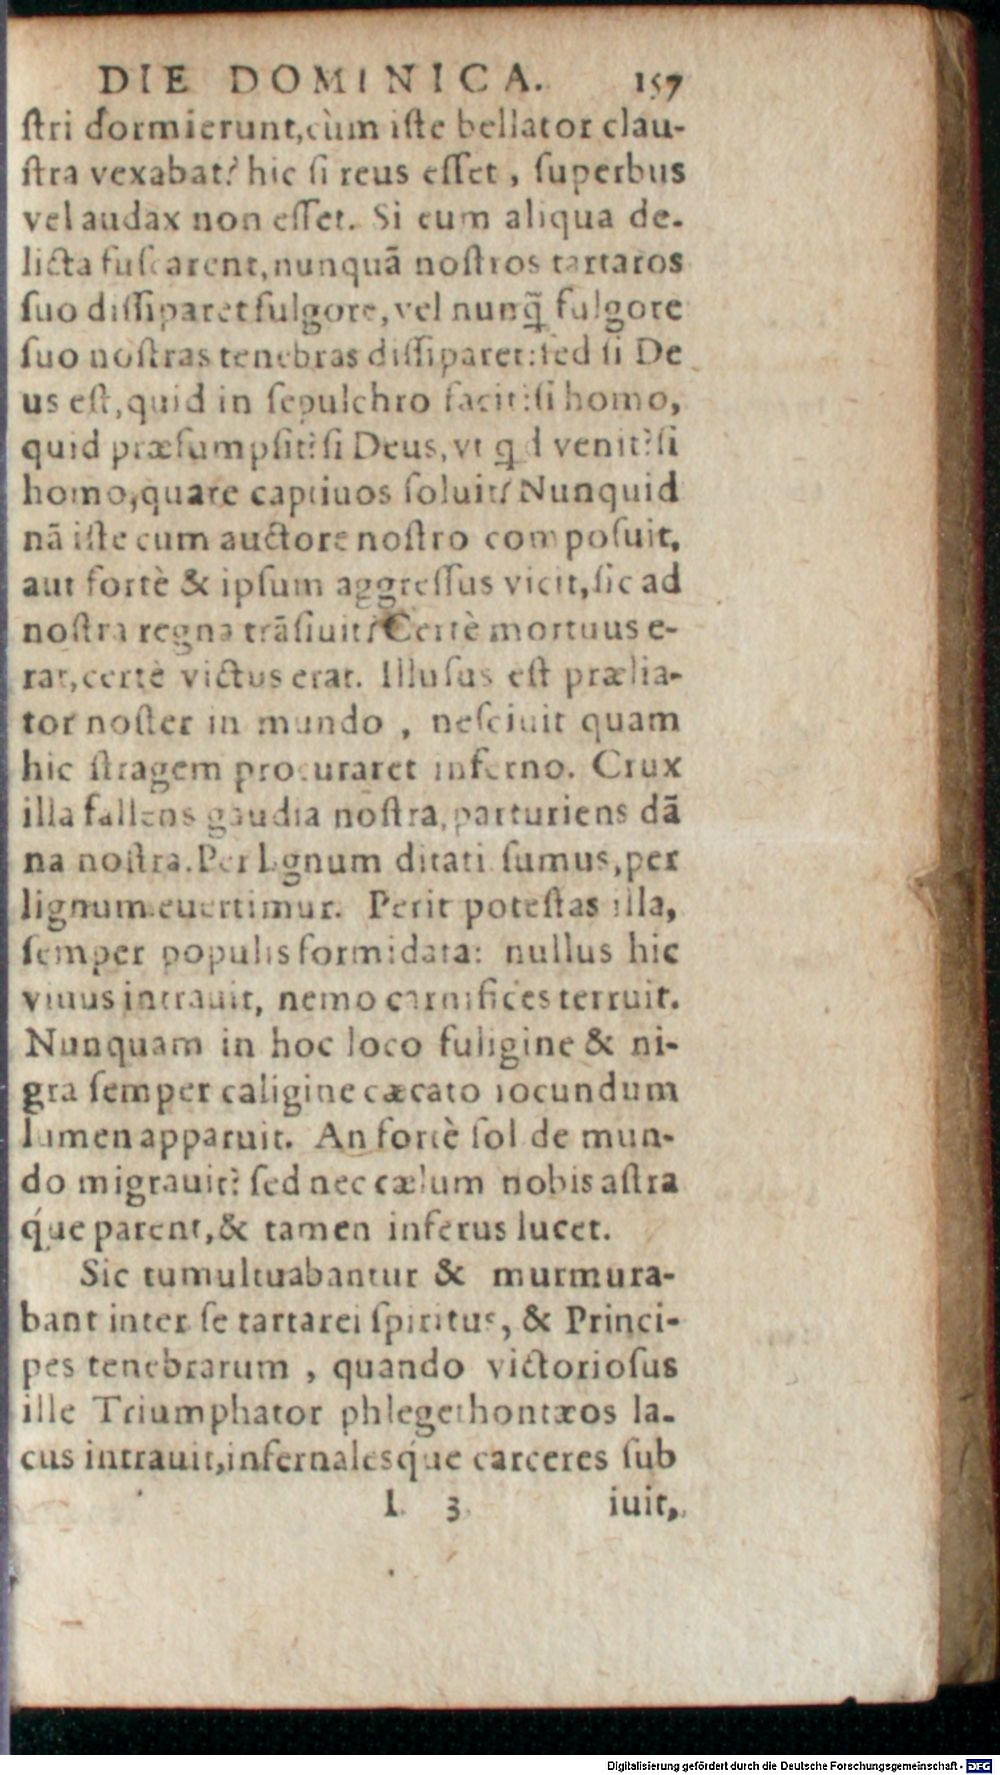 DIE DOMINICA. 157
ſtri dormierunt,cùm iſte bellator clau-
ſtra vexabat? hic ſi reus eſſet , ſuperbus
vel audax non eſſet. Si eum aliqua de-
licta fuſcarent,nunquã noſtros tartaros
ſuo diſſiparet fulgore,vel nunq̃ fulgore
ſuo noſtras tenebras diſſiparet:ſed ſi De
us eſt,quid in ſepulchro facit:ſi homo,
quid præſumpſit?ſi Deus,vt qd venit?ſi
homo,quare captiuos ſoluit? Nunquid
nã iſte cum auctore noſtro compoſuit,
aut fortè & ipſum aggreſſus vicit,ſic ad
noſtra regna trãſiuit? Certè mortuus e-
rat,certè victus erat. Illuſus eſt prælia-
tor noſter in mundo , neſciuit quam
hic ſtragem procuraret inferno. Crux
illa fallens gaudia noſtra,parturiens dã
na noſtra.Per lignum ditati ſumus,per
lignum euertimur. Perit poteſtas illa,
ſemper populis formidata: nullus hic
viuus intrauit, nemo carnifices terruit.
Nunquam in hoc loco fuligine & ni-
gra ſemper caligine cæcato iocundum
lumen apparuit. An fortè ſol de mun-
do migrauit? ſed nec cælum nobis aſtra
q́ue parent,& tamen inferus lucet.
Sic tumultuabantur & murmura-
bant inter ſe tartarei ſpiritus, & Princi-
pes tenebrarum , quando victorioſus
ille Triumphator phlegethontæos la-
cus intrauit,infernalesq́ue carceres ſub
L 3 iuit,
Digitalisierung gefördert durch die Deutsche Forschungsgemeinschaft - DFG